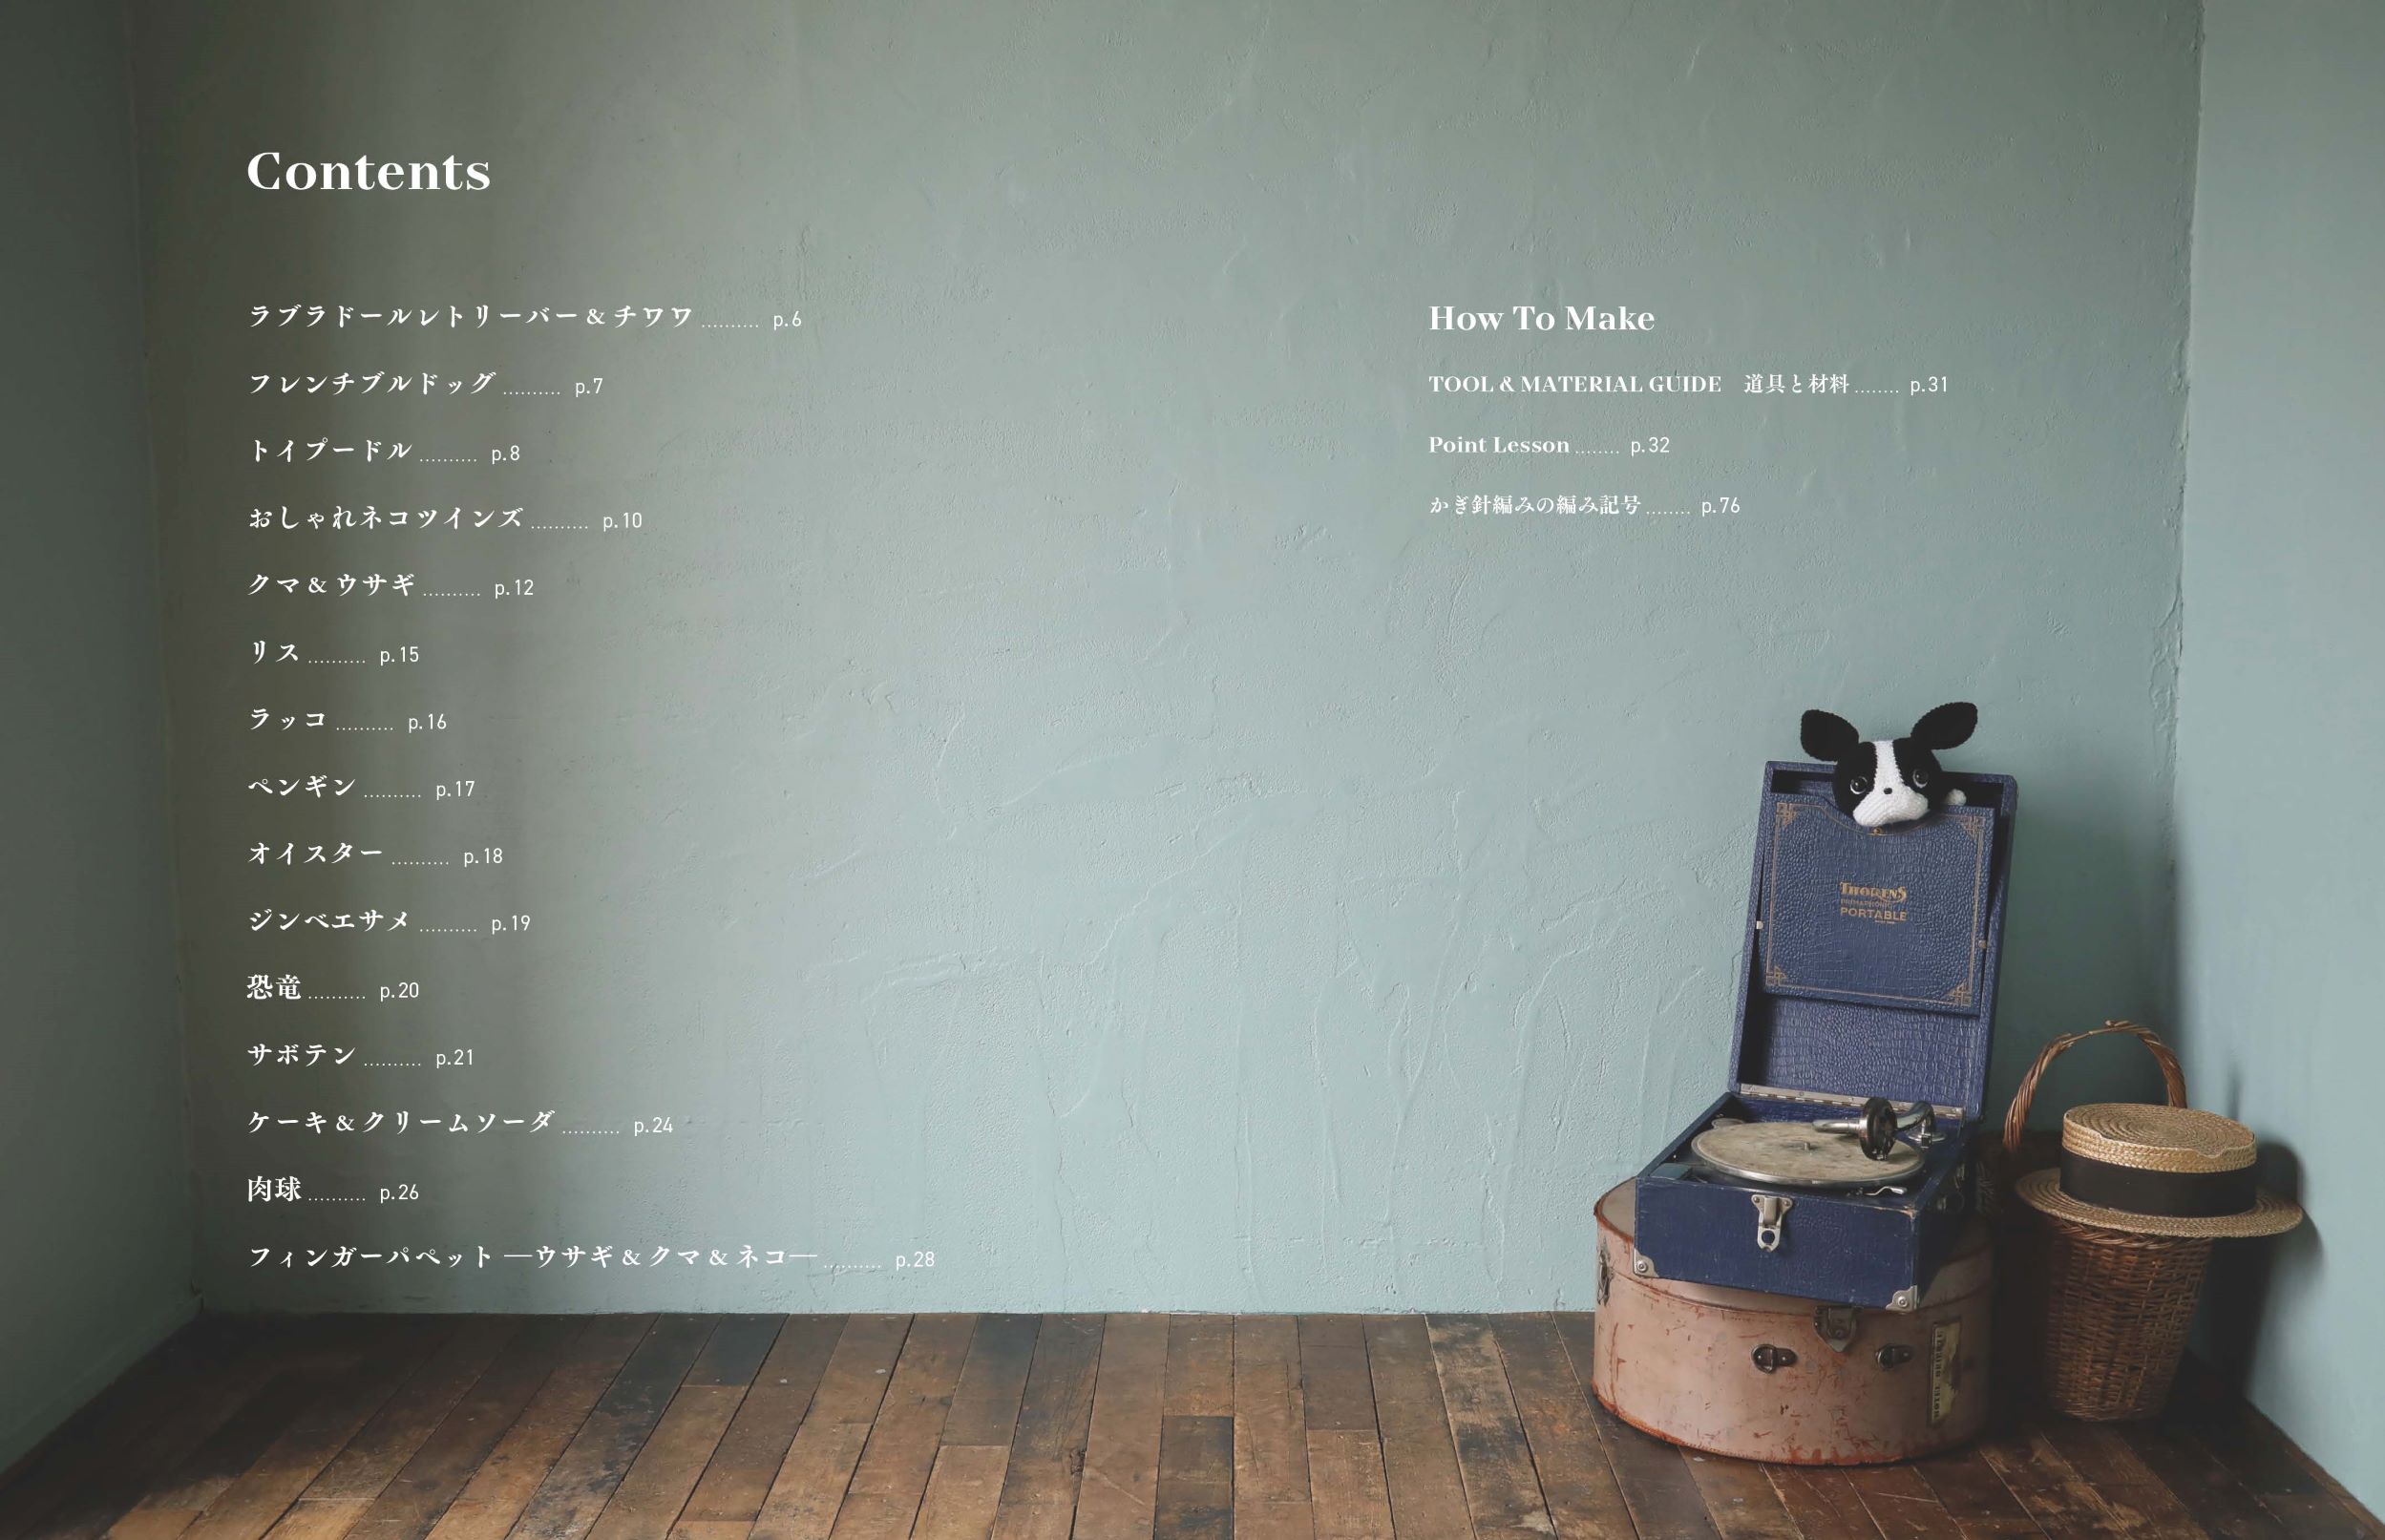 Contents
ラブラドールレトリーバー & チワワ .......... p.6
フレンチブルドッグ .......... p.7
トイプードル .......... p.8
おしゃれネコツインズ .......... p.10
クマ & ウサギ .......... p.12
リス .......... p.15
ラッコ .......... p.16
ペンギン .......... p.17
オイスター .......... p.18
ジンベエサメ .......... p.19
恐竜 .......... p.20
サボテン .......... p.21
ケーキ & クリームソーダ .......... p.24
肉球 .......... p.26
フィンガーパペット ―ウサギ & クマ & ネコ― .......... p.28
How To Make
TOOL & MATERIAL GUIDE 道具と材料 ........ p.31
Point Lesson ........ p.32
かぎ針編みの編み記号 ........ p.76
THORENS
PORTABLE